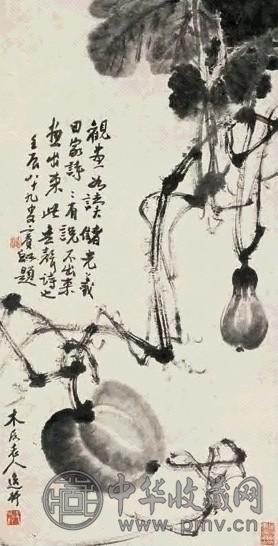 觀畫如讀儲光羲
田家詩〻有說不出來
畫出來此無聲詩也
壬辰八十九叟賓虹題
木民老人
中华收藏网
www.pmv.cn